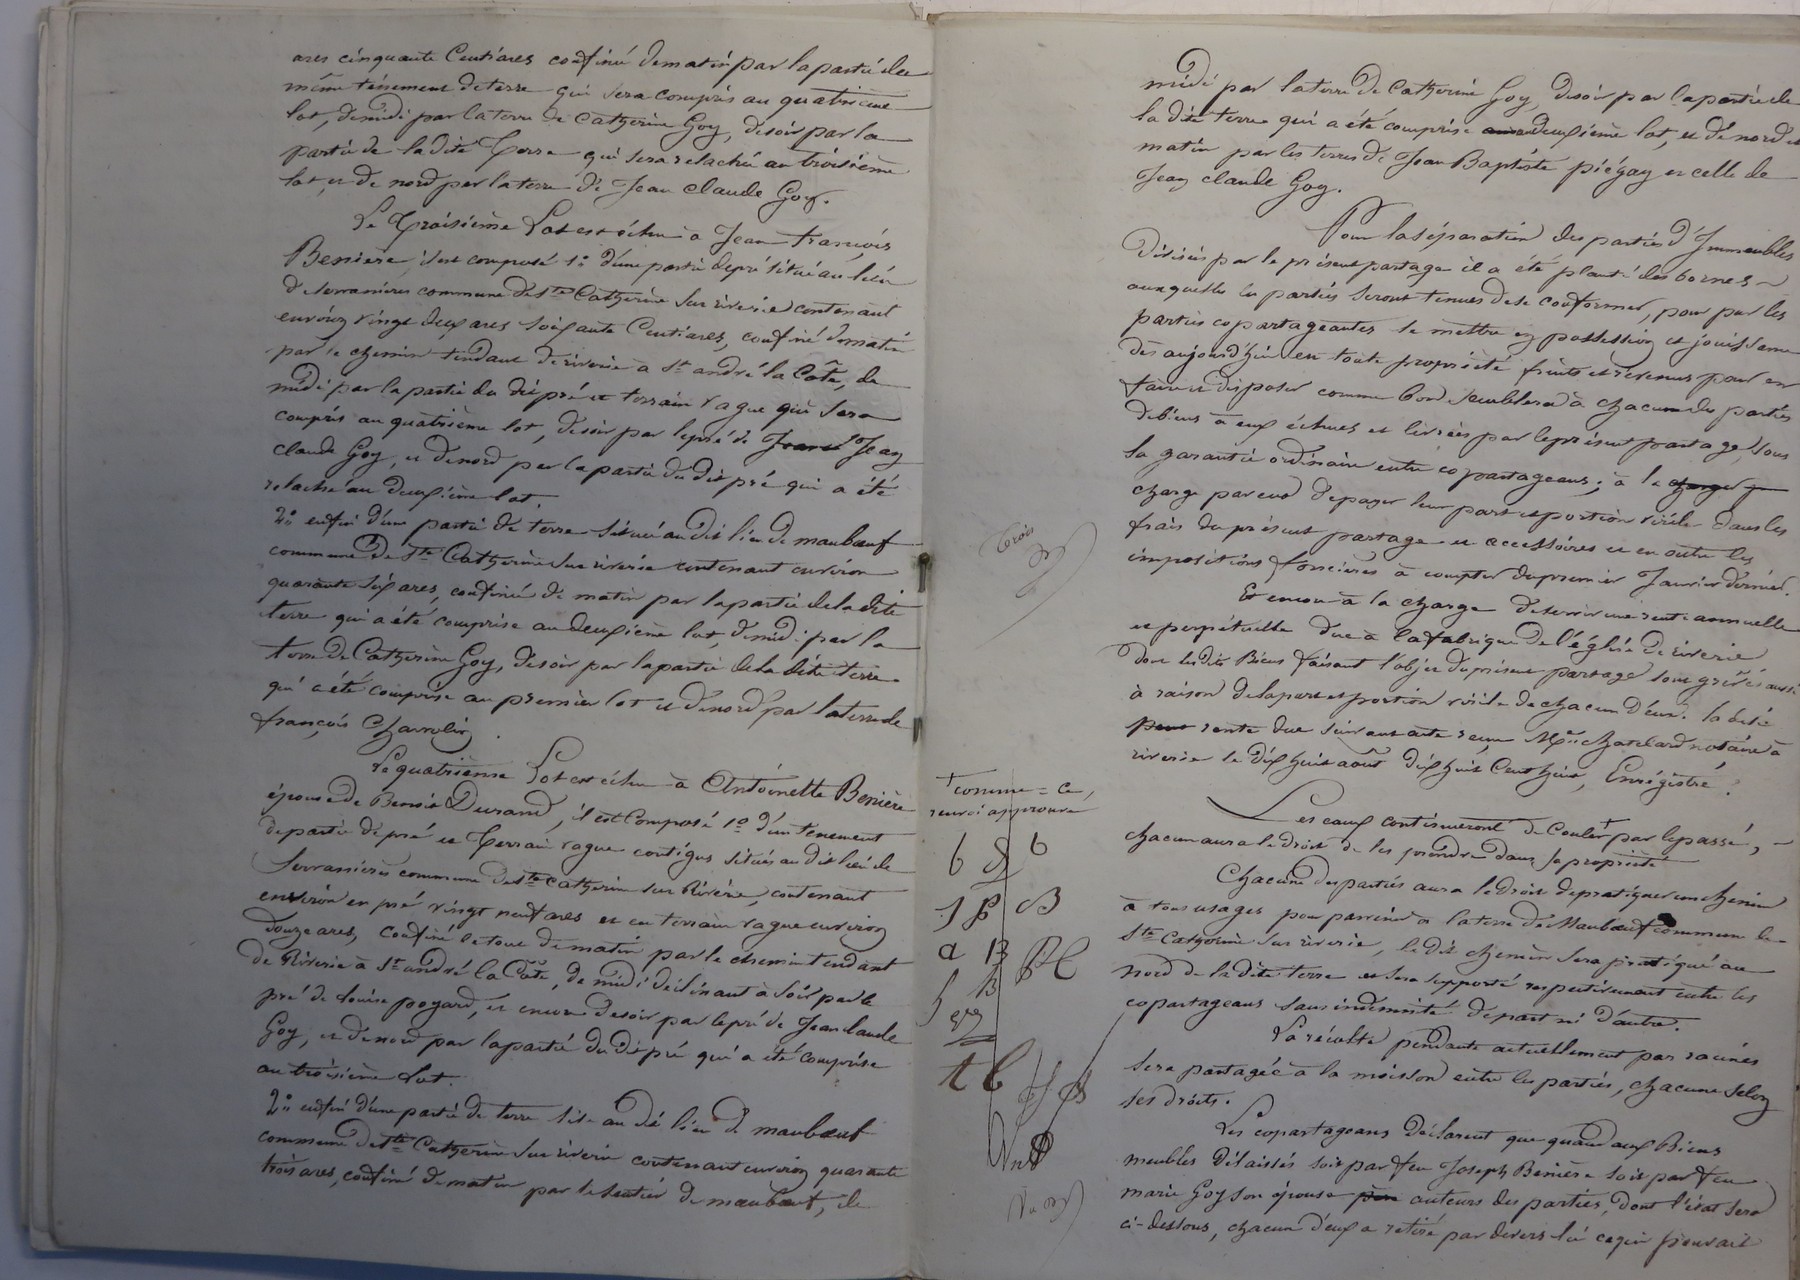 ares cinquante Centiares confiné de matin par la partie du
même tènement de terre qui sera compris au quatrième
lot, de midi par la terre de Catherine Goy, de soir par la
partie de la dite Terre qui sera relachée au troisième
lot, et de nord par la terre de Jean Claude Goy.
Le Troisième Lot est échu à Jean François
Benière, il est composé 1º d'une partie de pré situé au lieu
de Serrasnières commune de Ste Catherine sur riverie contenant
environ vingt deux ares soixante Centiares, confiné de matin
par le chemin tendant de riverie à St andré la Cote, de
midi par la partie du dit pré et terrain vague qui sera
compris au quatrième lot, de soir par le pré de Jean Jean
Claude Goy, et de nord par la partie du dit pré qui a été
relaché au deuxième lot.
2º enfin d'une partie de terre située au dit lieu de manbœuf
commune de Ste Catherine sur riverie contenant environ
quarante six ares, confiné de matin par la partie de la dite
terre qui a été comprise au deuxième lot, de midi par la
terre de Catherine Goy, de soir par la partie de la dite terre
qui a été comprise au premier lot et de nord par la terre de
françois Charvolin.
Le quatrième Lot est échu à Antoinette Benière
épouse de Benoit Durand, il est Composé 1º d'un tenement
de partie de pré et Terrain vague contigus situés au dit lieu de
Serrasnières commune de Ste Catherine sur Riverie, contenant
environ en pré vingt neuf ares et en terrain vague environ
Douze ares, confiné le tout de matin par le chemin tendant
de Riverie à St andré la Côte, de midi déclinant à soir par le
pré de Louise poyard, et encore de soir par le pré de Jean Claude
Goy, et de nord par la partie du dit pré qui a été comprise
au troisième Lot.
2º enfin d'une partie de terre sise au dit lieu de manbœuf
commune de Ste Catherine sur riverie contenant environ quarante
trois ares, confiné de matin par le sentier de manbœuf, de
midi par la terre de Catherine Goy, de soir par la partie de
la dite terre qui a été comprise au deuxième lot, et de nord et
matin par les terres de Jean Baptiste piégay et celle de
Jean Claude Goy.
Pour la séparation des parties d'Immeubles
Divisées par le présent partage il a été planté des bornes
auxquelles les parties seront tenues de se conformer, pour par les
parties copartageantes se mettre en possession et jouissance
dès aujourd'hui en toute propriété fruits et revenus pour en
faire et disposer comme bon semblera à chacune des parties
de biens à eux échues et livrées par le présent partage, sous
la garantie ordinaire entre copartageans; à la charge
charge par eux de payer leur part et portion virile dans les
frais du présent partage et accessoires et en outre les
impositions foncières à compter du premier Janvier dernier.
Et encore à la charge de servir une rente annuelle
et perpétuelle due à la fabrique de l'église de riverie
dont les dits Biens faisant l'objet du présent partage sont grévés aussi
à raison de la part et portion virile de chacun d'eux. la dite
rente due suivant acte reçu Me Chatelard notaire à
riverie le dix huit août dix huit Cent huit, Enrégistré.
Les eaux continueront de Couler + par le passé,
chacun aura le droit de les prendre dans sa propriété
Chacune des parties aura le droit de pratiquer un chemin
à tous usages pour parvenir à la terre de Manbœuf commune de
Ste Catherine sur riverie, le dit chemin sera pratiqué au
nord de la dite terre et sera supporté respectivement entre les
copartageans sans indemnité de part ni d'autre.
La récolte pendante actuellement par racines
sera partagée à la moisson entre les parties, chacune selon
ses droits.
Les copartageans déclarent que quand aux Biens
meubles délaissés soit par feu Joseph Benière soit par feu
marie Goy son épouse auteurs des parties, dont l'état sera
ci-dessous, chacun d'eux a retiré par devers lui ce qui pouvait
trois
+ comme = ce,
renvoi approuvé